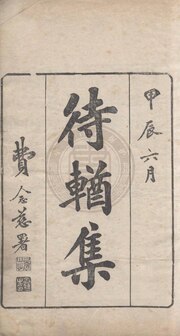 甲辰六月
待輶集
費念慈署